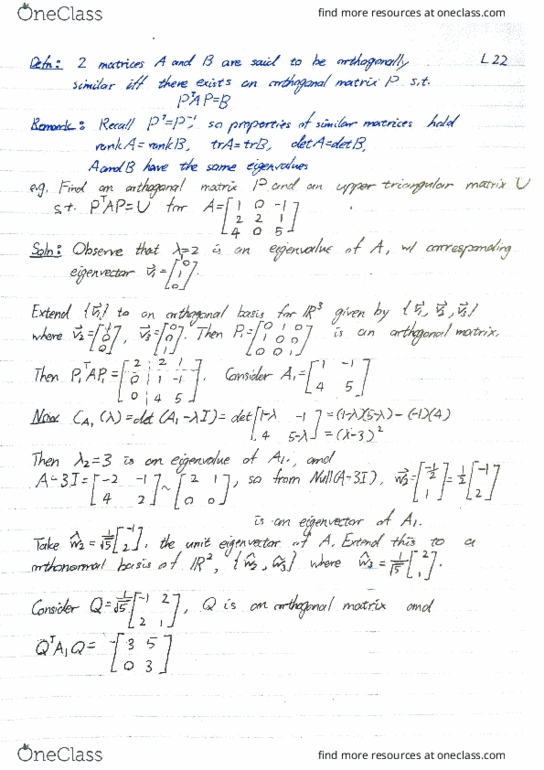 OneClass
find more resources at oneclass.com
Defn: 2 matrices A and B are said to be orthogonally L22
similar iff there exists an orthogonal matrix P s.t.
PᵀAP=B
Remark: Recall Pᵀ=P⁻¹, so properties of similar matrices hold
rankA=rankB, trA=trB, detA=detB,
A and B have the same eigenvalues
e.g. Find an orthogonal matrix P and an upper triangular matrix U
s.t. PᵀAP=U for A=[1 0 -1
2 2 1
4 0 5]
Soln: Observe that λ=2 is an eigenvalue of A, w/ corresponding
eigenvector v₁=[0
1
0].
Extend {v₁} to an orthogonal basis for ℝ³ given by {v₁, v₂, v₃}
where v₂=[1
0
0], v₃=[0
0
1]. Then P₁=[0 1 0
1 0 0
0 0 1] is an orthogonal matrix.
Then P₁ᵀAP₁=[2 2 1
0 1 -1
0 4 5]. Consider A₁=[1 -1
4 5]
Now C_A₁(λ)=det(A₁-λI)=det[1-λ -1
4 5-λ]=(1-λ)(5-λ)-(-1)(4)
=(λ-3)²
Then λ₂=3 is an eigenvalue of A₁, and
A-3I=[-2 -1
4 2]~[2 1
0 0], so from Null(A-3I), w₂=[-1/2
1]=1/2[-1
2]
is an eigenvector of A₁.
Take ŵ₂=1/√5[-1
2], the unit eigenvector of A. Extend this to a
orthonormal basis of ℝ², {ŵ₂, ŵ₃} where ŵ₃=1/√5[2
1].
Consider Q=1/√5[-1 2
2 1], Q is an orthogonal matrix and
QᵀA₁Q=[3 5
0 3]
OneClass
find more resources at oneclass.com